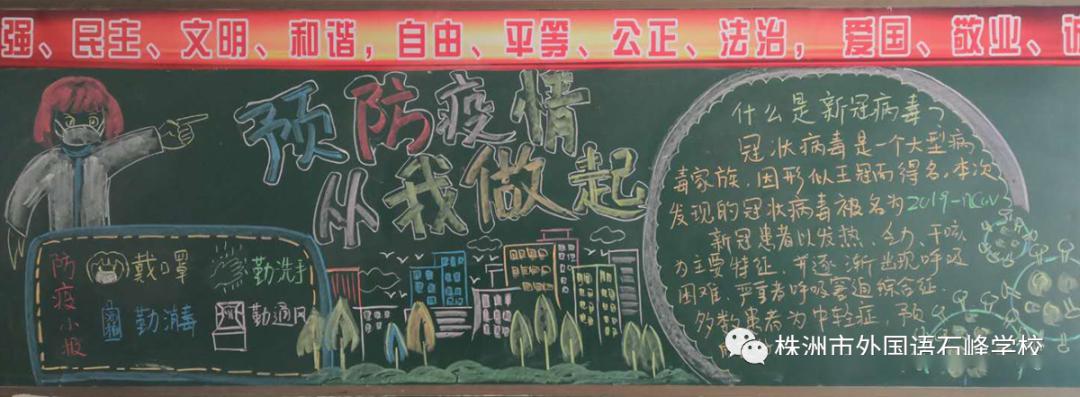 强、民主、文明、和谐，自由、平等、公正、法治，爱国、敬业、诚
预防疫情
从我做起
防疫小报
戴口罩
勤洗手
勤消毒
勤通风
什么是新冠病毒?
冠状病毒是一个大型病
毒家族，因形似王冠而得名。本次
发现的冠状病毒被名为2019-nCoV
新冠患者以发热、乏力、干咳
为主要特征，并逐渐出现呼吸
困难，严重者呼吸窘迫综合征.
多数患者为中轻症，预
株洲市外国语石峰学校